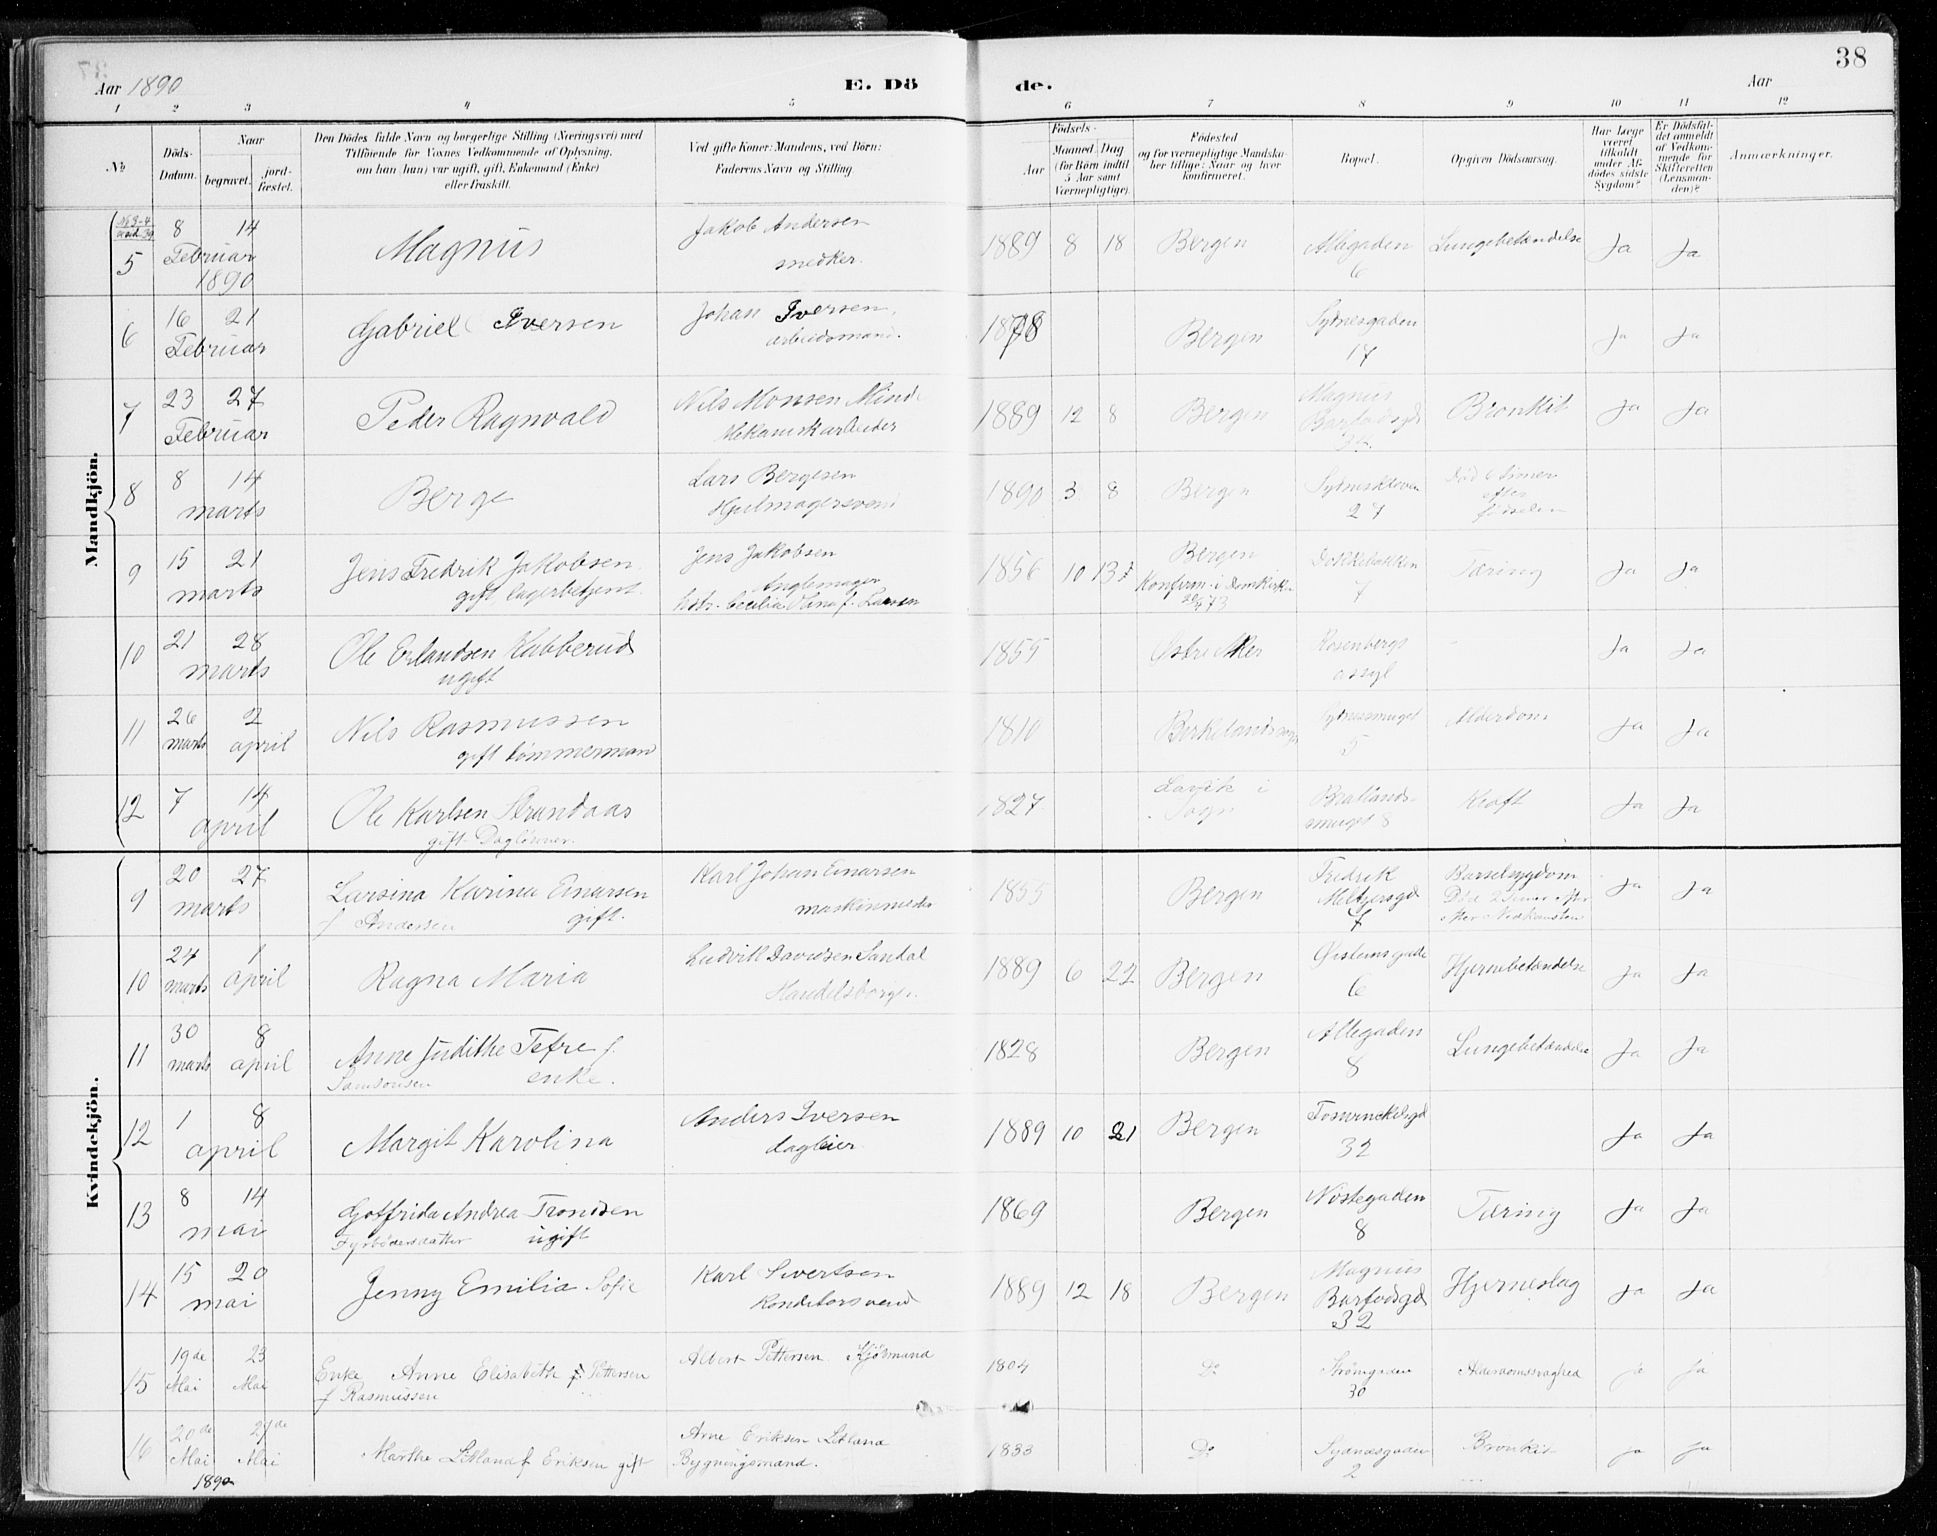 38
Aar 1890
E. Dö
de.
Aar
1 2 3 4 5 6 7 8 9 10 11 12
No
Döds-Datum.
Naar
begravet.
jord-fæstet.
Den Dödes fulde Navn og borgerlige Stilling (Næringsvei) med
Tilföiende for Voxnes Vedkommende af Oplysning,
om han (hun) var ugift, gift, Enkemand (Enke)
eller fraskilt.
Ved gifte Koner: Mandens, ved Börn:
Faderens Navn og Stilling
Födsels-
Aar
Maaned Dag
(for Börn indtil
5 Aar samt
Værnepligtige).
Födested
og for værnepligtige Mandska-
ber tillige: Naar og hvor
konfirmeret.
Bopæl.
Opgiven Dödsaarsag.
Har Læge
været
tilkaldt
under Af-
dödes sidste
Sygdom?
Er Dödsfal-
det anmeldt
af Vedkom-
mende for
Skifteretten
(Lensman-
den)?
Anmærkninger.
Mandkjön.
No 3-4
5 8 14 Februar 1890 Magnus Jakob Andersen snedker. 1889 8 18 Bergen Allegaden 6 Lungebetændelse Ja Ja
6 16 21 Februar Gabriel Iversen Johan Iversen, arbeidsmand. 1878 Bergen Sydnesgaden 17 Ja Ja
7 23 27 Februar Peder Ragnvald Nils Monsen Minde Mekanisk arbeider 1889 12 8 Bergen Magnus Barfodsgd Bronkit Ja Ja
8 8 14 marts Berge Lars Bergesen Hjulmagersvend 1890 3 8 Bergen Sydneskleven 27 Död 6 timer efter födselen
9 15 21 marts Jens Fredrik Jakobsen gift, lagerbetjent. Jens Jakobsen Anglemager 1856 10 13 Bergen Konfirm. i Domkirken 73 Dokkebakken 7 Tæring Ja Ja
10 21 28 marts Ole Erlandsen Kabberud ugift 1855 Østre Aker Rosenbergs asyl - Ja Ja
11 26 marts 2 april Nils Rasmussen gift tømmermand 1810 Birkelandssogn Sydnessmuget 5 Alderdom Ja Ja
12 7 14 april Ole Karlsen Strandaas gift. Daglønner. 1827 Lavik i Sogn Bratlands-smuget 8 Kræft Ja Ja
Kvindekjön.
9 20 27 marts Larsina Karina Einarsen f Andersen gift. Karl Johan Einarsen maskinmester 1855 Bergen Fredrik Meltzersgd 7 Barselsygdom Död 2 timer efter Nedkomsten Ja Ja
10 24 marts 1 april Ragna Maria Ludvik Davidsen Sandal Handelsborger. 1889 6 22 Bergen Øistensgade 6 Hjernebetændelse Ja Ja
11 30 marts 8 april Anne Judithe Tefre f. Samsonsen enke. 1828 Bergen Allegaden 8 Lungebetændelse Ja Ja
12 1 8 april Margit Karolina Anders Iversen dagleier. 1889 10 21 Bergen 32 Ja Ja
13 8 14 mai Gotfrida Andrea Trondsen Fyrbödersdatter ugift 1869 Bergen Nöstegaden 8 Tæring Ja Ja
14 15 20 mai Jenny Emilia Sofie Karl Sivertsen Konditorsvend 1889 12 18 Bergen Magnus Barfodsgd 32 Hjerneslag Ja Ja
15 19de Mai 23 Mai Enke Anne Elisabeth Pettersen f Rasmussen Albert Pettersen Kjöbmand 1804 Do Strömgaden 30 Alderdomssvaghed ja ja
16 20de Mai 27de Mai Marthe Litland f Eriksen gift Arne Eriksen Litland Bygningsmand. 1833 Do Sydnæsgaden 2 Bronkit ja ja
1890